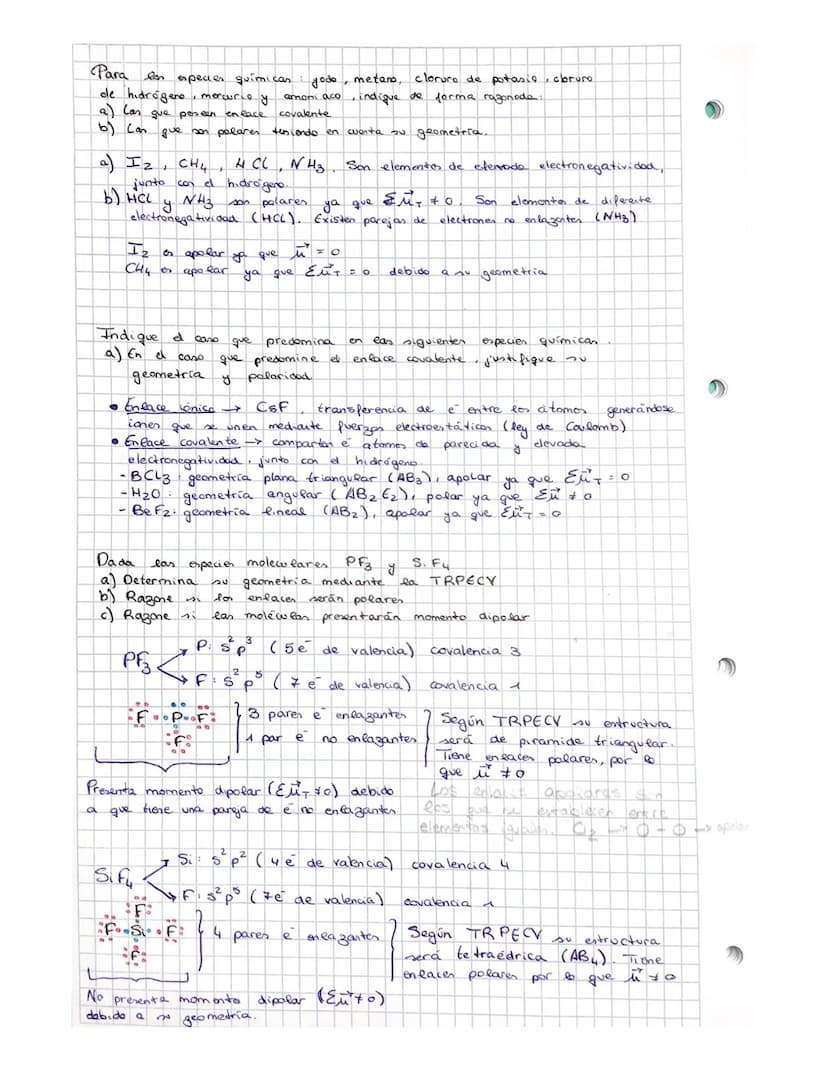 Para las especies químicas: yodo, metano, cloruro de potasio, cloruro
de hidrógeno, mercurio y amoniaco, indique de forma razonada:
a) Las que posean enlace covalente
b) Las que son polares teniendo en cuenta su geometría.
a) I₂, CH₄, HCl, NH₃. Son elementos de elevada electronegatividad,
junto con el hidrógeno.
b) HCl y NH₃ son polares ya que Σμ⃗T ≠ 0. Son elementos de diferente
electronegatividad (HCl). Existen parejas de electrones no enlazantes (NH₃)
I₂ es apolar ya que μ⃗ = 0
CH₄ es apolar ya que Σμ⃗T = 0 debido a su geometría
Indique el caso que predomina en las siguientes especies químicas.
a) En el caso que predomine el enlace covalente, justifique su
geometría y polaridad
• Enlace iónico → CsF, transferencia de e⁻ entre los átomos generándose
iones que se unen mediante fuerzas electroestáticas (ley de Coulomb)
• Enlace covalente → comparten e⁻ átomos de parecida y elevada
electronegatividad, junto con el hidrógeno.
- BCl₃: geometría plana triangular (AB₃), apolar ya que Σμ⃗T = 0
- H₂O: geometría angular (AB₂E₂), polar ya que Σμ⃗ ≠ 0
- BeF₂: geometría lineal (AB₂), apolar ya que Σμ⃗T = 0
Dada las especies moleculares PF₃ y SiF₄
a) Determina su geometría mediante la TRPECV
b) Razone si los enlaces serán polares
c) Razone si las moléculas presentarán momento dipolar
PF₃
P: s²p³ (5e⁻ de valencia) covalencia 3
F: s²p⁵ (7e⁻ de valencia) covalencia 1
F P F
F
3 pares e⁻ enlazantes
1 par e⁻ no enlazantes
Según TRPECV su estructura
será de piramide triangular.
Tiene enlaces polares, por lo
que μ⃗ ≠ 0
Presenta momento dipolar (Σμ⃗T ≠ 0) debido
a que tiene una pareja de e⁻ no enlazantes
Los enlaces apolares son
los que se establecen entre
elementos iguales. O₂ → O - O → apolar
SiF₄
Si: s²p² (4e⁻ de valencia) covalencia 4
F: s²p⁵ (7e⁻ de valencia) covalencia 1
F
F Si F
F
4 pares e⁻ enlazantes
Según TRPECV su estructura
será tetraédrica (AB₄). Tiene
enlaces polares por lo que μ⃗ ≠ 0
No presenta momento dipolar (Σμ⃗ ≠ 0)
debido a su geometría.